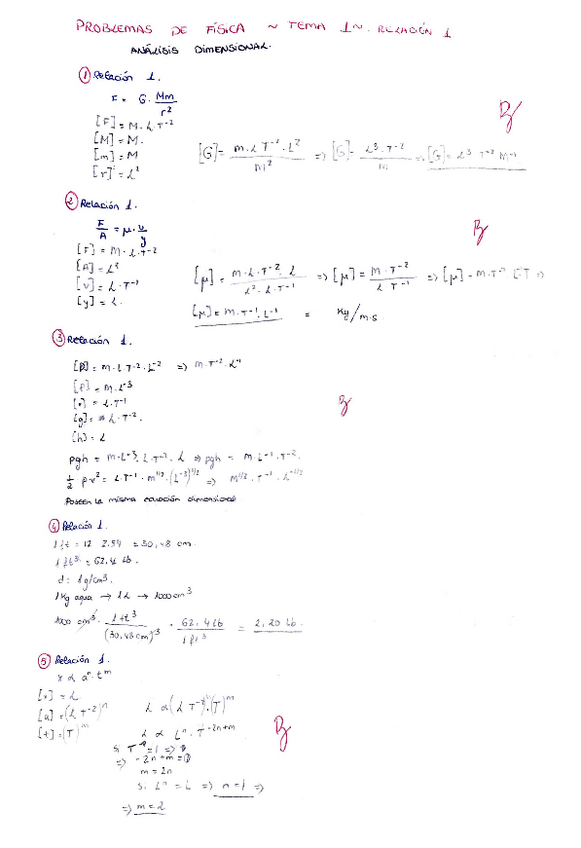 PROBLEMAS DE FÍSICA ~ TEMA 1 ~. RELACIÓN 1
ANÁLISIS DIMENSIONAL.
① Relación 1.
F = G · Mm/r²
[F] = M · L · T⁻²
[M] = M.
[m] = M
[r]² = L²
[G] = M · L T⁻² · L² / M² => [G] = L³ · T⁻² / M => [G] = L³ T⁻² M⁻¹
② Relación 1.
F/A = μ · v/y
[F] = M · L · T⁻²
[A] = L²
[v] = L · T⁻¹
[y] = L.
[μ] = M · L · T⁻² · L / L² · L · T⁻¹ => [μ] = M · T⁻² / L T⁻¹ => [μ] = M · T⁻¹
[μ] = M · T⁻¹ · L⁻¹ = Kg/m·s
③ Relación 1.
[P] = M · L · T⁻² · L⁻² => M · T⁻² · L⁻¹
[ρ] = M · L⁻³
[v] = L · T⁻¹
[g] = L · T⁻².
[h] = L
ρgh = M · L⁻³ · L · T⁻² · L => ρgh = M · L⁻¹ · T⁻².
½ ρ · v² = L · T⁻¹ · M^1/2 · (L⁻³)^1/2 => M^1/2 · T⁻¹ · L^-1/2
Poseen la misma ecuación dimensional
④ Relación 1.
1 ft = 12 2.54 = 30,48 cm.
1 ft³ = 62,4 lb.
d: 1g/cm³.
1 Kg agua → 1L → 1000 cm³
1000 cm³ · 1 ft³ / (30,48 cm)³ · 62,4 lb / 1 ft³ = 2,20 lb.
⑤ Relación 1.
x α aⁿ · tᵐ
[x] = L
[a] = (L T⁻²)ⁿ
[t] = (T)ᵐ
L α (L T⁻²)ⁿ · (T)ᵐ
L α Lⁿ · T⁻²ⁿ⁺ᵐ
=> -2n + m = 0
m = 2n
Si Lⁿ = L => n = 1 =>
=> m = 2